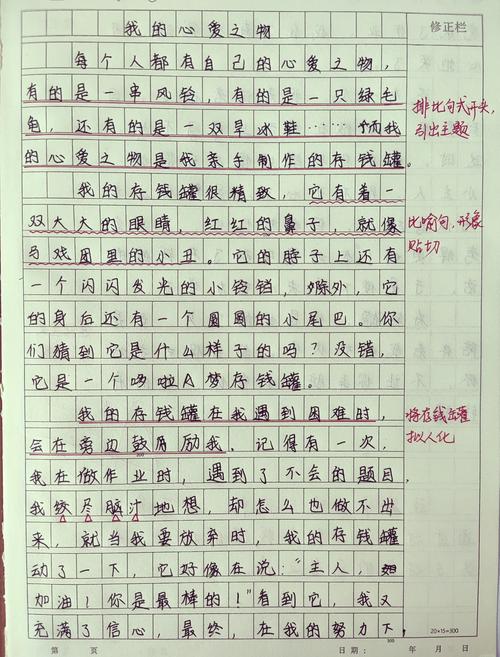 我的心爱之物
修正栏
每个人都有自己的心爱之物,
有的是一串风铃,有的是一只绿毛
龟,还有的是一双旱冰鞋……而我
的心爱之物是我亲手制作的存钱罐。
排比句式开头,
引出主题
我的存钱罐很精致,它有着一
双大大的眼睛,红红的鼻子,就像
马戏团里的小丑。它的脖子上还有
比喻句,形象
贴切
一个闪闪发光的小铃铛,除外,它
的身后还有一个圆圆的小尾巴。你
们猜到它是什么样子的吗?没错,
它是一个哆啦A梦存钱罐。
我的存钱罐在我遇到困难时,
会在旁边鼓励我。记得有一次,
将存钱罐
拟人化
我在做作业时,遇到了不会的题目,
我绞尽脑汁地想,却怎么也做不出
来,就当我要放弃时,我的存钱罐
动了一下,它好像在说:“主人,
加油!你是最棒的!”看到它,我又
充满了信心,最终,在我的努力下,
20×15=300
第 页
日期: 年 月 日